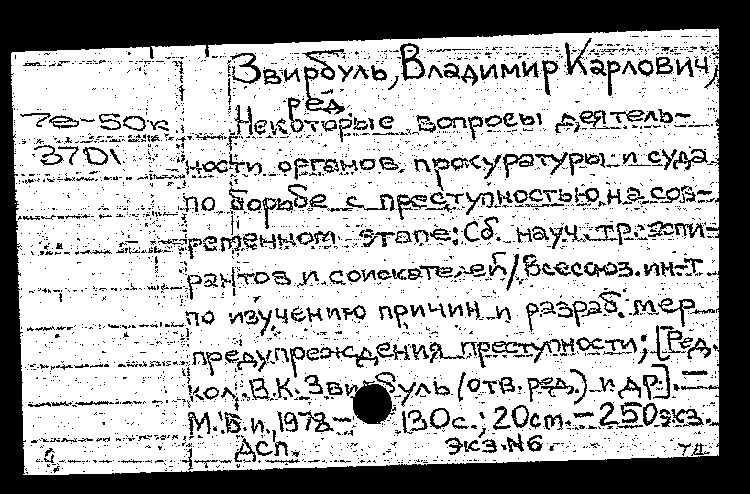 Звирбуль, Владимир Карлович,
ред.
7е-50к
Некоторые вопросы деятель-
37D1
ности органов прокуратуры и суда
по борьбе с преступностью на сов-
ременном этапе: Сб. науч. тр. аспи-
рантов и соискателей/Всесоюз. ин-т
по изучению причин и разраб. мер
предупреждения преступности; [Ред.
кол. В.К. Звирбуль (отв. ред.) и др.]. —
М.: Б.и., 1978.— 130с.; 20см. — 250экз.
Дсп. экз. №6.